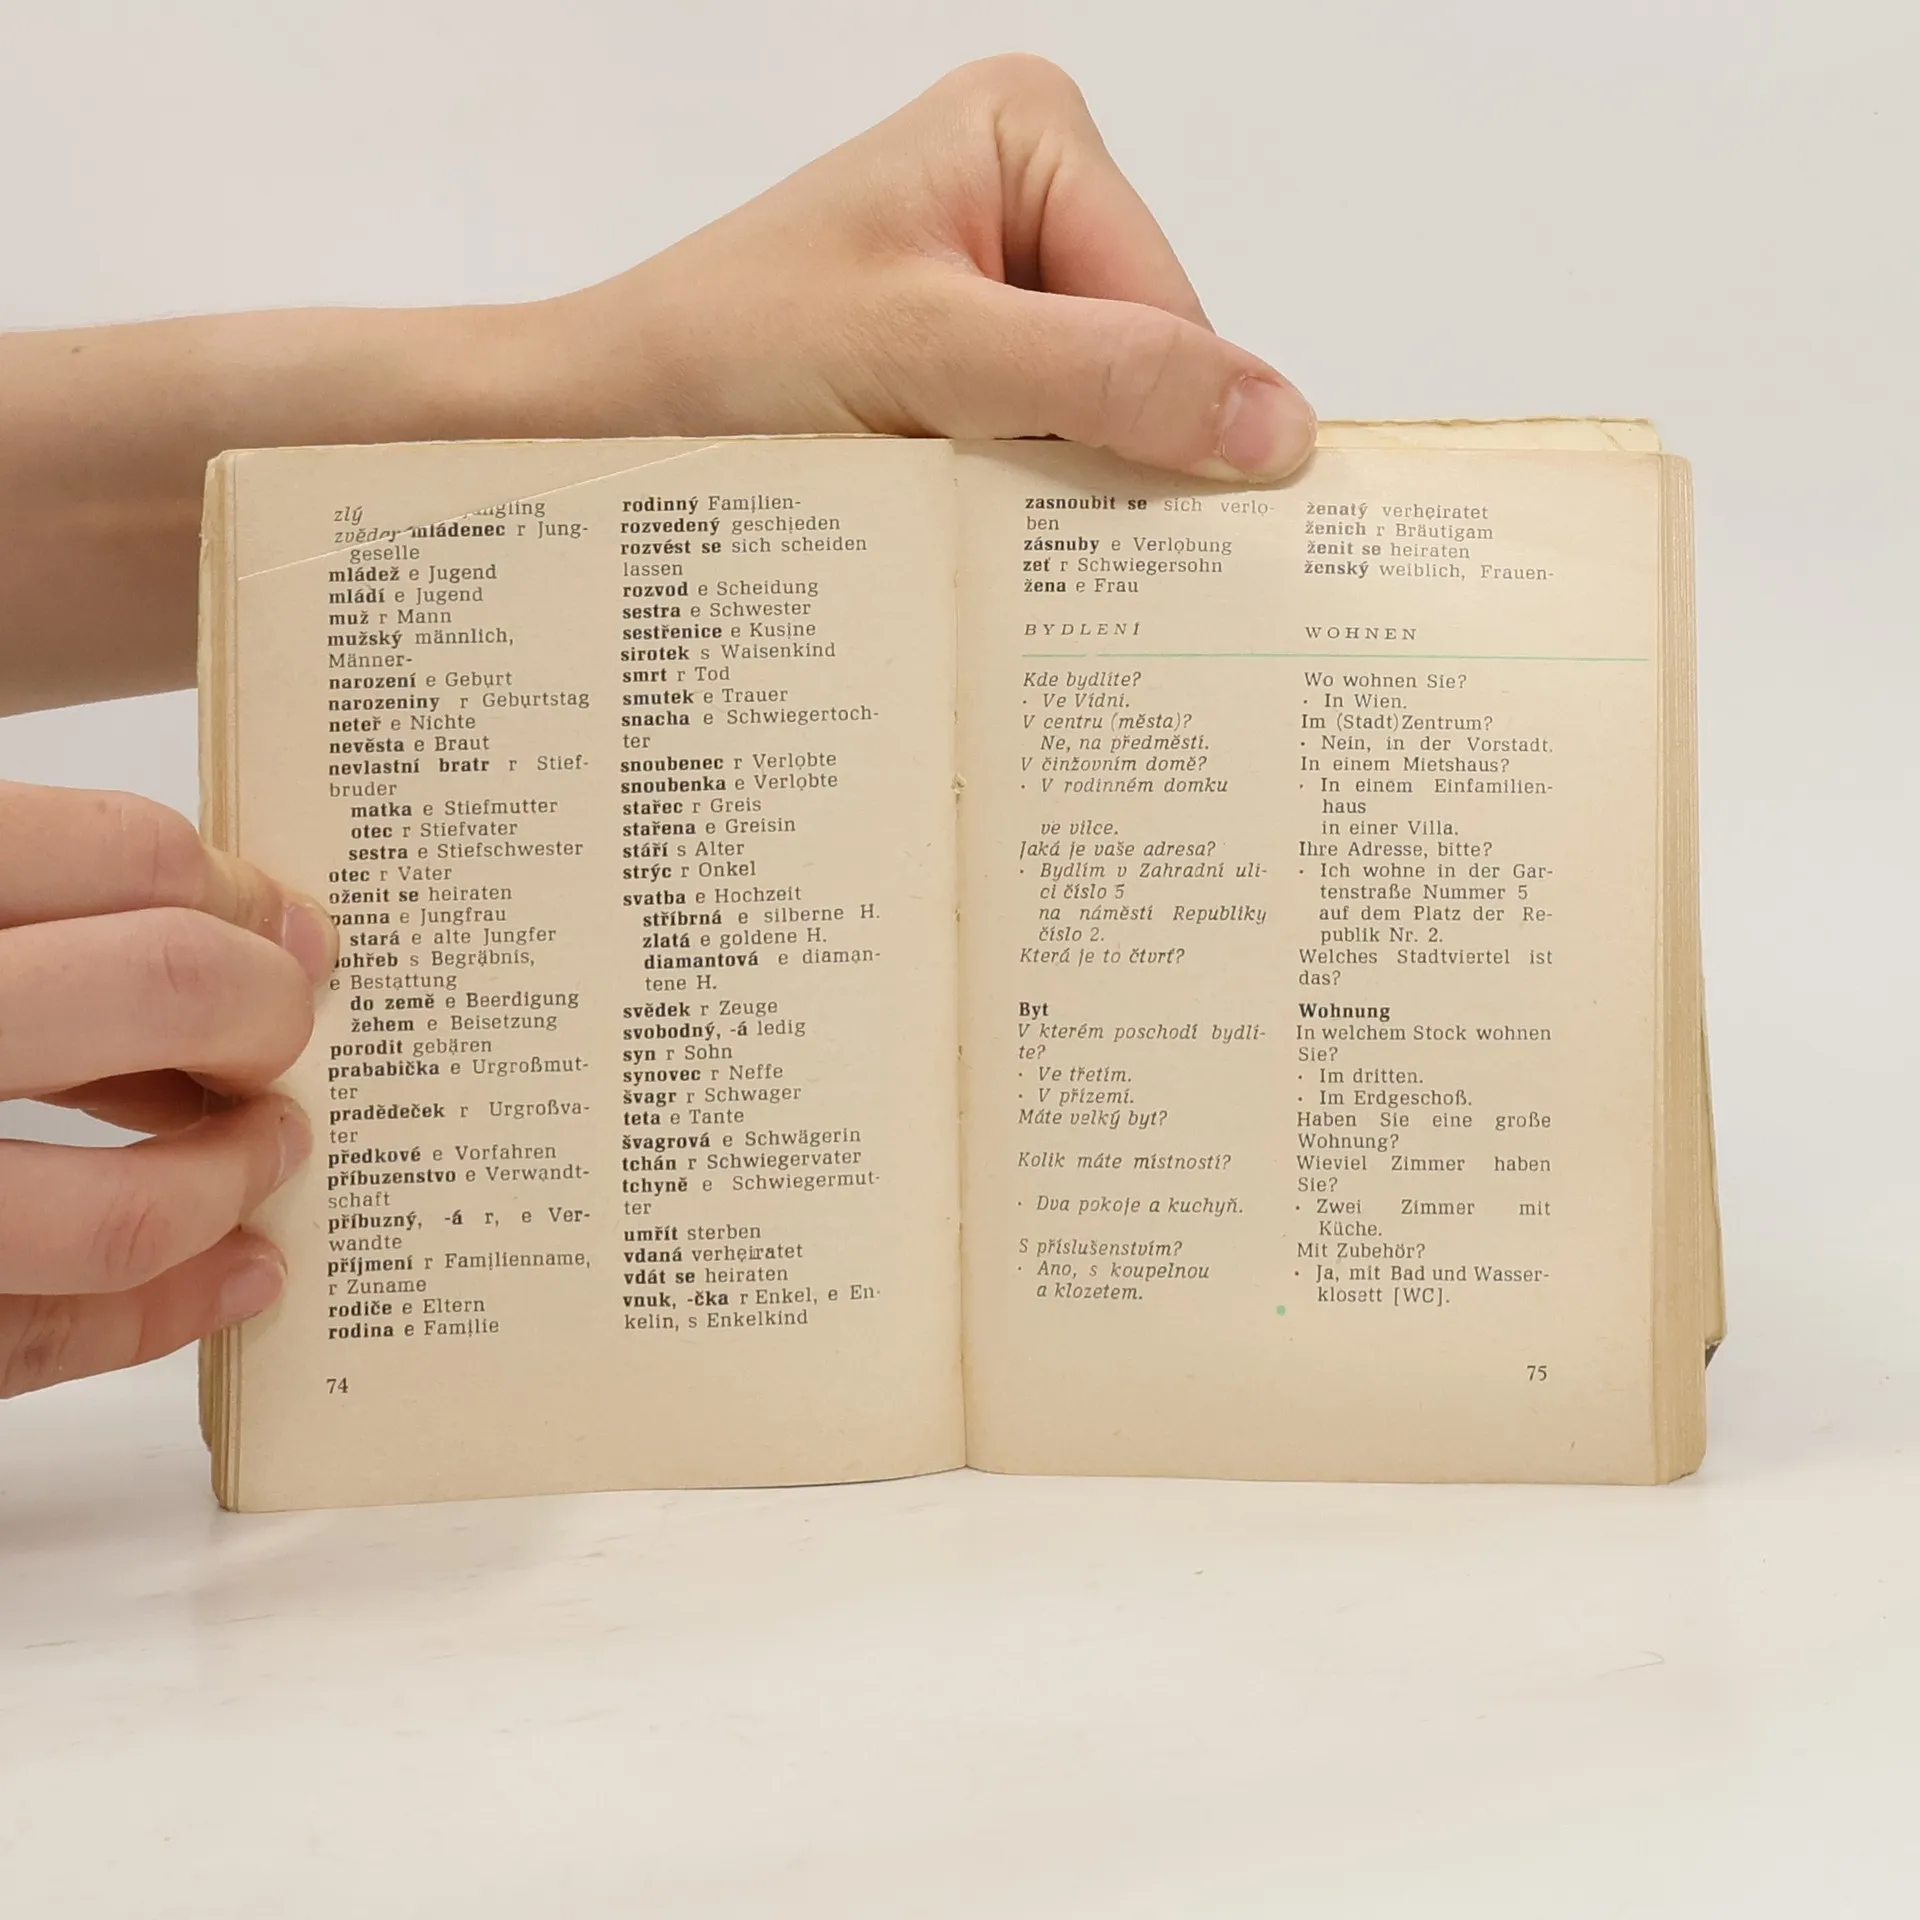 zlý
mládenec r Jung-
geselle
mládež e Jugend
mládí e Jugend
muž r Mann
mužský männlich,
Männer-
narození e Geburt
narozeniny r Geburtstag
neteř e Nichte
nevěsta e Braut
nevlastní bratr r Stief-
bruder
matka e Stiefmutter
otec r Stiefvater
sestra e Stiefschwester
otec r Vater
oženit se heiraten
panna e Jungfrau
stará e alte Jungfer
pohřeb s Begräbnis,
e Bestattung
do země e Beerdigung
žehem e Beisetzung
porodit gebären
prababička e Urgroßmut-
ter
pradědeček r Urgroßva-
ter
předkové e Vorfahren
příbuzenstvo e Verwandt-
schaft
příbuzný, -á r, e Ver-
wandte
příjmení r Familienname,
r Zuname
rodiče e Eltern
rodina e Familie
74
rodinný Familien-
rozvedený geschieden
rozvést se sich scheiden
lassen
rozvod e Scheidung
sestra e Schwester
sestřenice e Kusine
sirotek s Waisenkind
smrt r Tod
smutek e Trauer
snacha e Schwiegertoch-
ter
snoubenec r Verlobte
snoubenka e Verlobte
stařec r Greis
stařena e Greisin
stáří s Alter
strýc r Onkel
svatba e Hochzeit
stříbrná e silberne H.
zlatá e goldene H.
diamantová e diaman-
tene H.
svědek r Zeuge
svobodný, -á ledig
syn r Sohn
synovec r Neffe
švagr r Schwager
teta e Tante
švagrová e Schwägerin
tchán r Schwiegervater
tchyně e Schwiegermut-
ter
umřít sterben
vdaná verheiratet
vdát se heiraten
vnuk, -čka r Enkel, e En-
kelin, s Enkelkind
zasnoubit se sich verlo-
ben
zásnuby e Verlobung
zeť r Schwiegersohn
žena e Frau
ženatý verheiratet
ženich r Bräutigam
ženit se heiraten
ženský weiblich, Frauen-
BYDLENÍ
Kde bydlíte?
· Ve Vídni.
V centru (města)?
Ne, na předměstí.
V činžovním domě?
· V rodinném domku
ve vilce.
Jaká je vaše adresa?
· Bydlím v Zahradní uli-
ci číslo 5
na náměstí Republiky
číslo 2.
Která je to čtvrť?
Byt
V kterém poschodí bydlí-
te?
· Ve třetím.
· V přízemí.
Máte velký byt?
Kolik máte místností?
· Dva pokoje a kuchyň.
S příslušenstvím?
· Ano, s koupelnou
a klozetem.
WOHNEN
Wo wohnen Sie?
· In Wien.
Im (Stadt)Zentrum?
· Nein, in der Vorstadt.
In einem Mietshaus?
· In einem Einfamilien-
haus
in einer Villa.
Ihre Adresse, bitte?
· Ich wohne in der Gar-
tenstraße Nummer 5
auf dem Platz der Re-
publik Nr. 2.
Welches Stadtviertel ist
das?
Wohnung
In welchem Stock wohnen
Sie?
· Im dritten.
· Im Erdgeschoß.
Haben Sie eine große
Wohnung?
Wieviel Zimmer haben
Sie?
· Zwei Zimmer mit
Küche.
Mit Zubehör?
· Ja, mit Bad und Wasser-
klosett [WC].
75